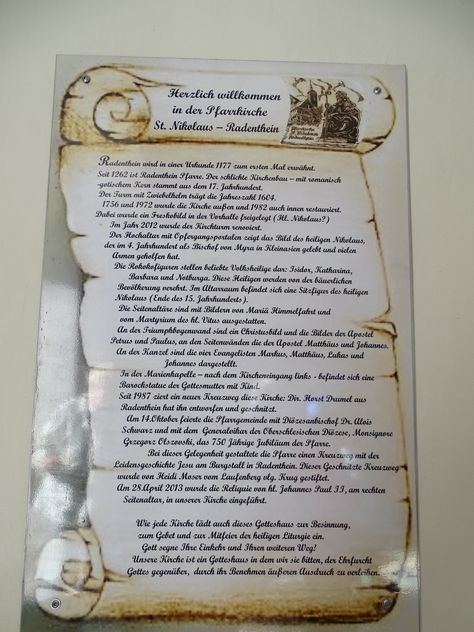 Herzlich willkommen
in der Pfarrkirche
St. Nikolaus – Radenthein
Radenthein wird in einer Urkunde 1177 zum ersten Mal erwähnt.
Seit 1262 ist Radenthein Pfarre. Der schlichte Kirchenbau – mit romanisch
-gotischem Kern stammt aus dem 17. Jahrhundert.
Der Turm mit Zwiebelhelm trägt die Jahreszahl 1604.
1756 und 1972 wurde die Kirche außen und 1982 auch innen restauriert.
Dabei wurde ein Freskobild in der Vorhalle freigelegt (Hl. Nikolaus?)
Im Jahr 2012 wurde der Kirchturm renoviert.
Der Hochaltar mit Opfergangsportalen zeigt das Bild des heiligen Nikolaus,
der im 4. Jahrhundert als Bischof von Myra in Kleinasien gelebt und vielen
Armen geholfen hat.
Die Rokokofiguren stellen beliebte Volksheilige dar: Isidor, Katharina,
Barbara und Notburga. Diese Heiligen werden von der bäuerlichen
Bevölkerung verehrt. Im Altarraum befindet sich eine Sitzfigur des heiligen
Nikolaus (Ende des 15. Jahrhunderts).
Die Seitenaltäre sind mit Bildern von Mariä Himmelfahrt und
vom Martyrium des hl. Vitus ausgestatten.
An der Triumphbogenwand sind ein Christusbild und die Bilder der Apostel
Petrus und Paulus, an den Seitenwänden die der Apostel Matthäus und Johannes.
An der Kanzel sind die vier Evangelisten Markus, Matthäus, Lukas und
Johannes dargestellt.
In der Marienkapelle – nach dem Kircheneingang links - befindet sich eine
Barockstatue der Gottesmutter mit Kind.
Seit 1987 ziert ein neuer Kreuzweg diese Kirche: Dir. Horst Drumel aus
Radenthein hat ihn entworfen und geschnitzt.
Am 14.Oktober feierte die Pfarrgemeinde mit Diözesanbischof Dr. Alois
Schwarz und mit dem Generalvikar der Oberschlesischen Diözese, Monsignore
Grzegorz Olszowski, das 750 Jährige Jubiläum der Pfarre.
Bei dieser Gelegenheit gestaltete die Pfarre einen Kreuzweg mit der
Leidensgeschichte Jesu am Burgstall in Radenthein. Dieser Geschnitzte Kreuzweg
wurde von Heidi Moser vom Laufenberg vlg. Krug gestiftet.
Am 28.April 2013 wurde die Reliquie von hl. Johannes Paul II, am rechten
Seitenaltar, in unserer Kirche eingeführt.
Wie jede Kirche lädt auch dieses Gotteshaus zur Besinnung,
zum Gebet und zur Mitfeier der heiligen Liturgie ein.
Gott segne Ihre Einkehr und Ihren weiteren Weg!
Unsere Kirche ist ein Gotteshaus in dem wir sie bitten, der Ehrfurcht
Gottes gegenüber, durch ihr Benehmen äußeren Ausdruck zu verleihen.